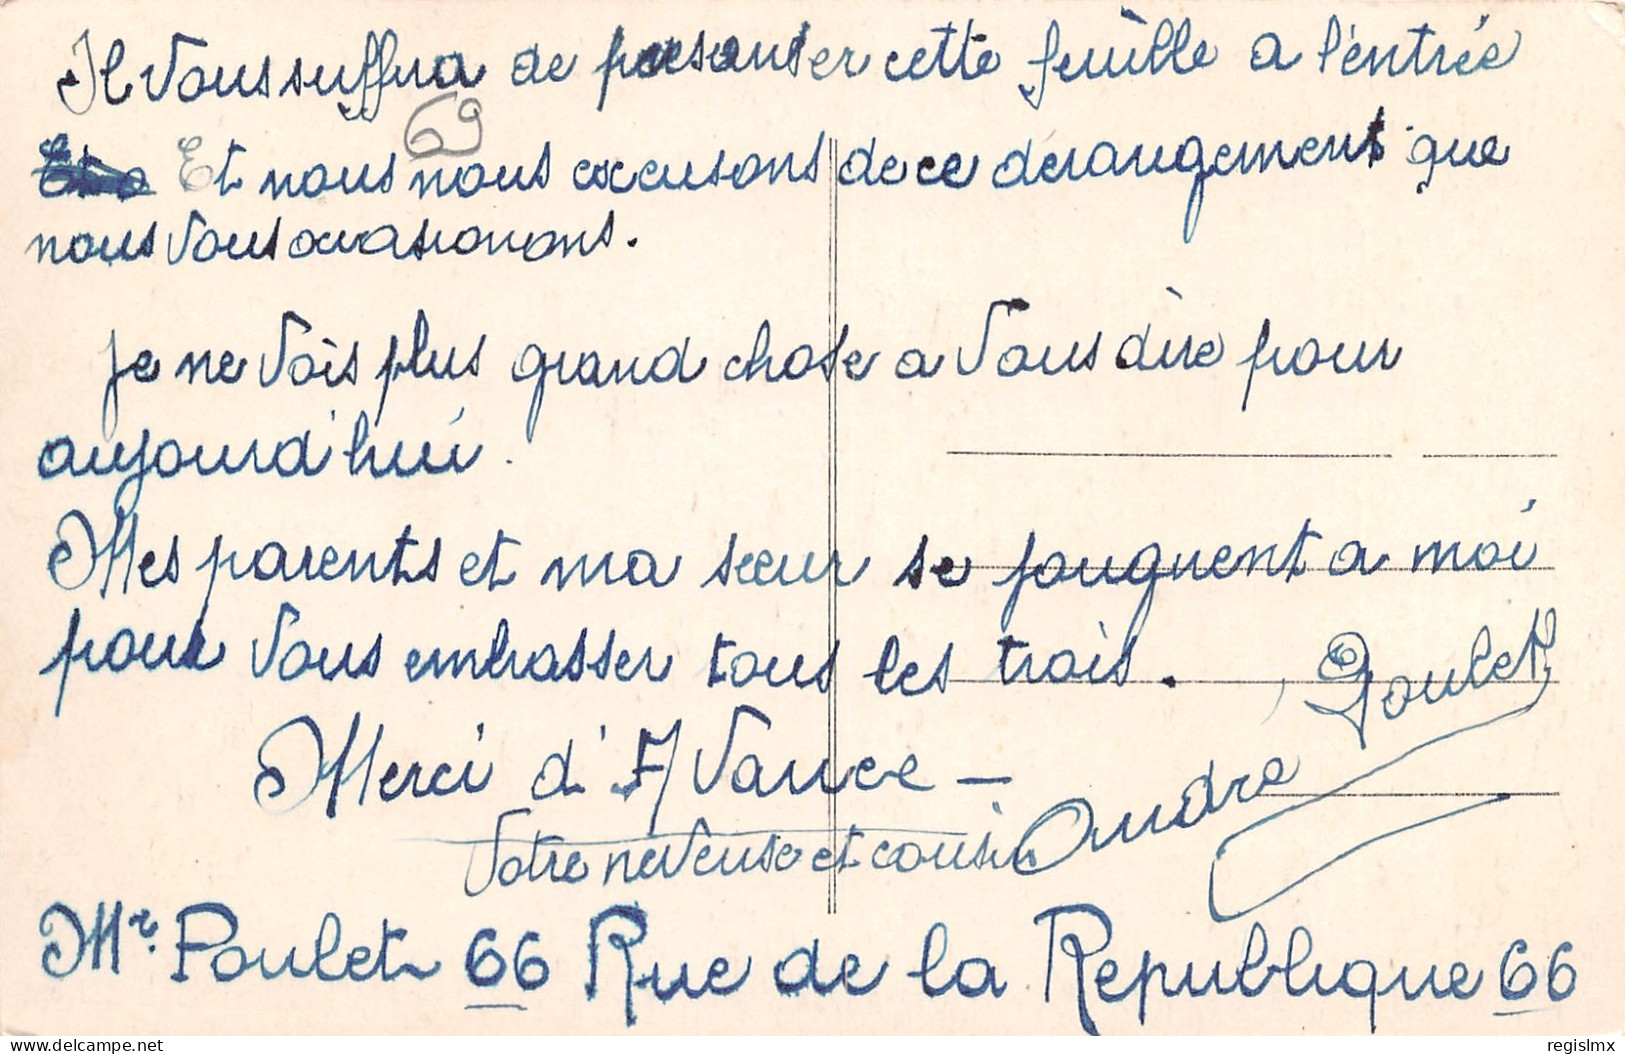 Il Vous suffira de presenter cette feuille a l'entrée
69
Et nous nous excusons de ce derangement que
nous Vous occasionons.
Je ne Vois plus grand chose a Vous dire pour
aujourd'hui.
Mes parents et ma sœur se jouguent a moi
pour Vous embrasser tous les trois.
Merci d'AVance —
Votre neveuse et cousin André Poulet
Mr. Poulet 66 Rue de la Republique 66
regislmx
delcampe.net